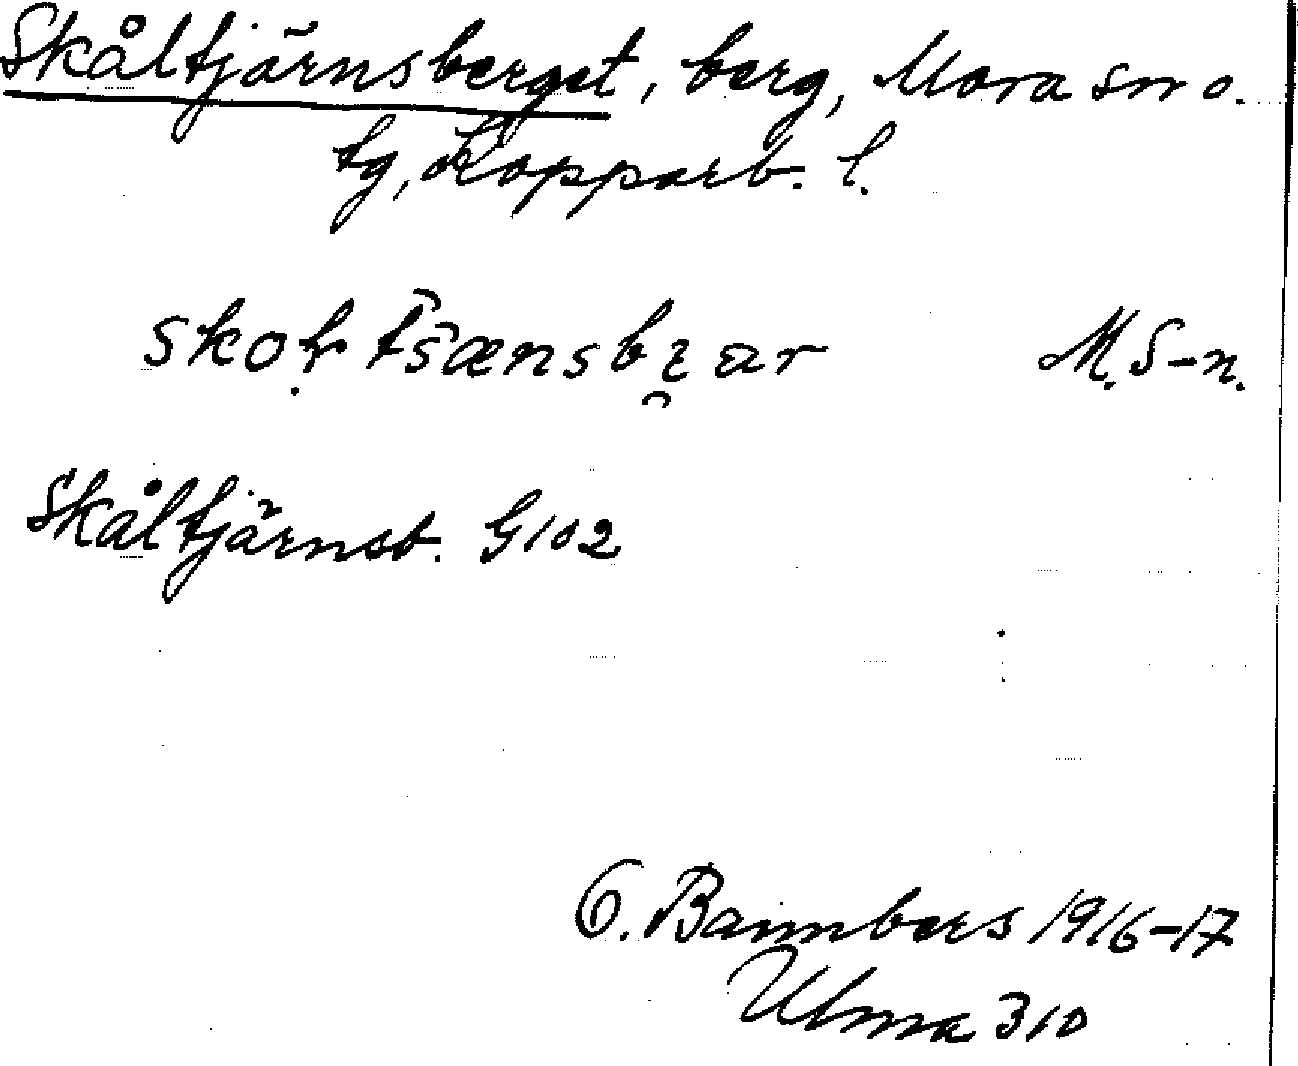 Skåltjärnsberget, berg, Mora sn o.
tg, Kopparb. l.
M. S-n.
Skåltjärnsb. G102
O. Bannbers 1916-17
Ulma 310